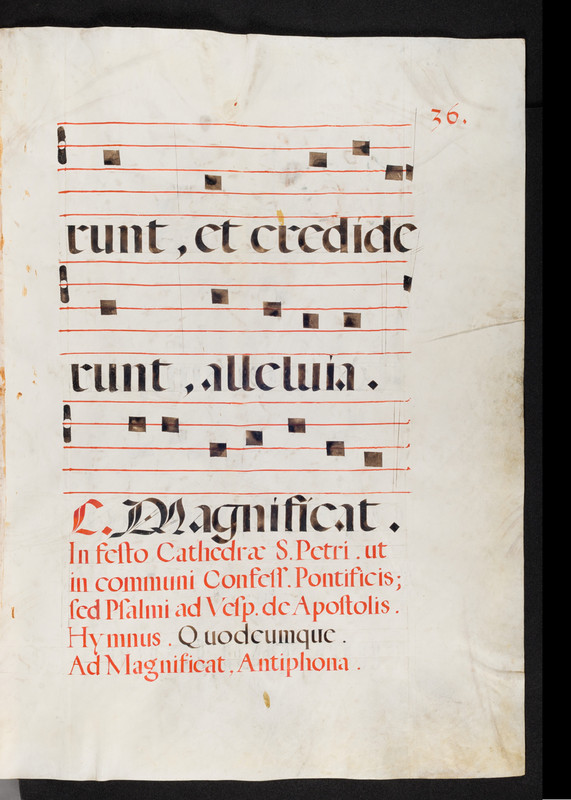 36.
runt, et credide
runt, alleluia.
C. Magnificat.
In feſto Cathedræ S. Petri. ut
in communi Confeſſ. Pontificis;
ſed Pſalmi ad Veſp. de Apoſtolis.
Hymnus. Quodcumque.
Ad Magnificat, Antiphona.